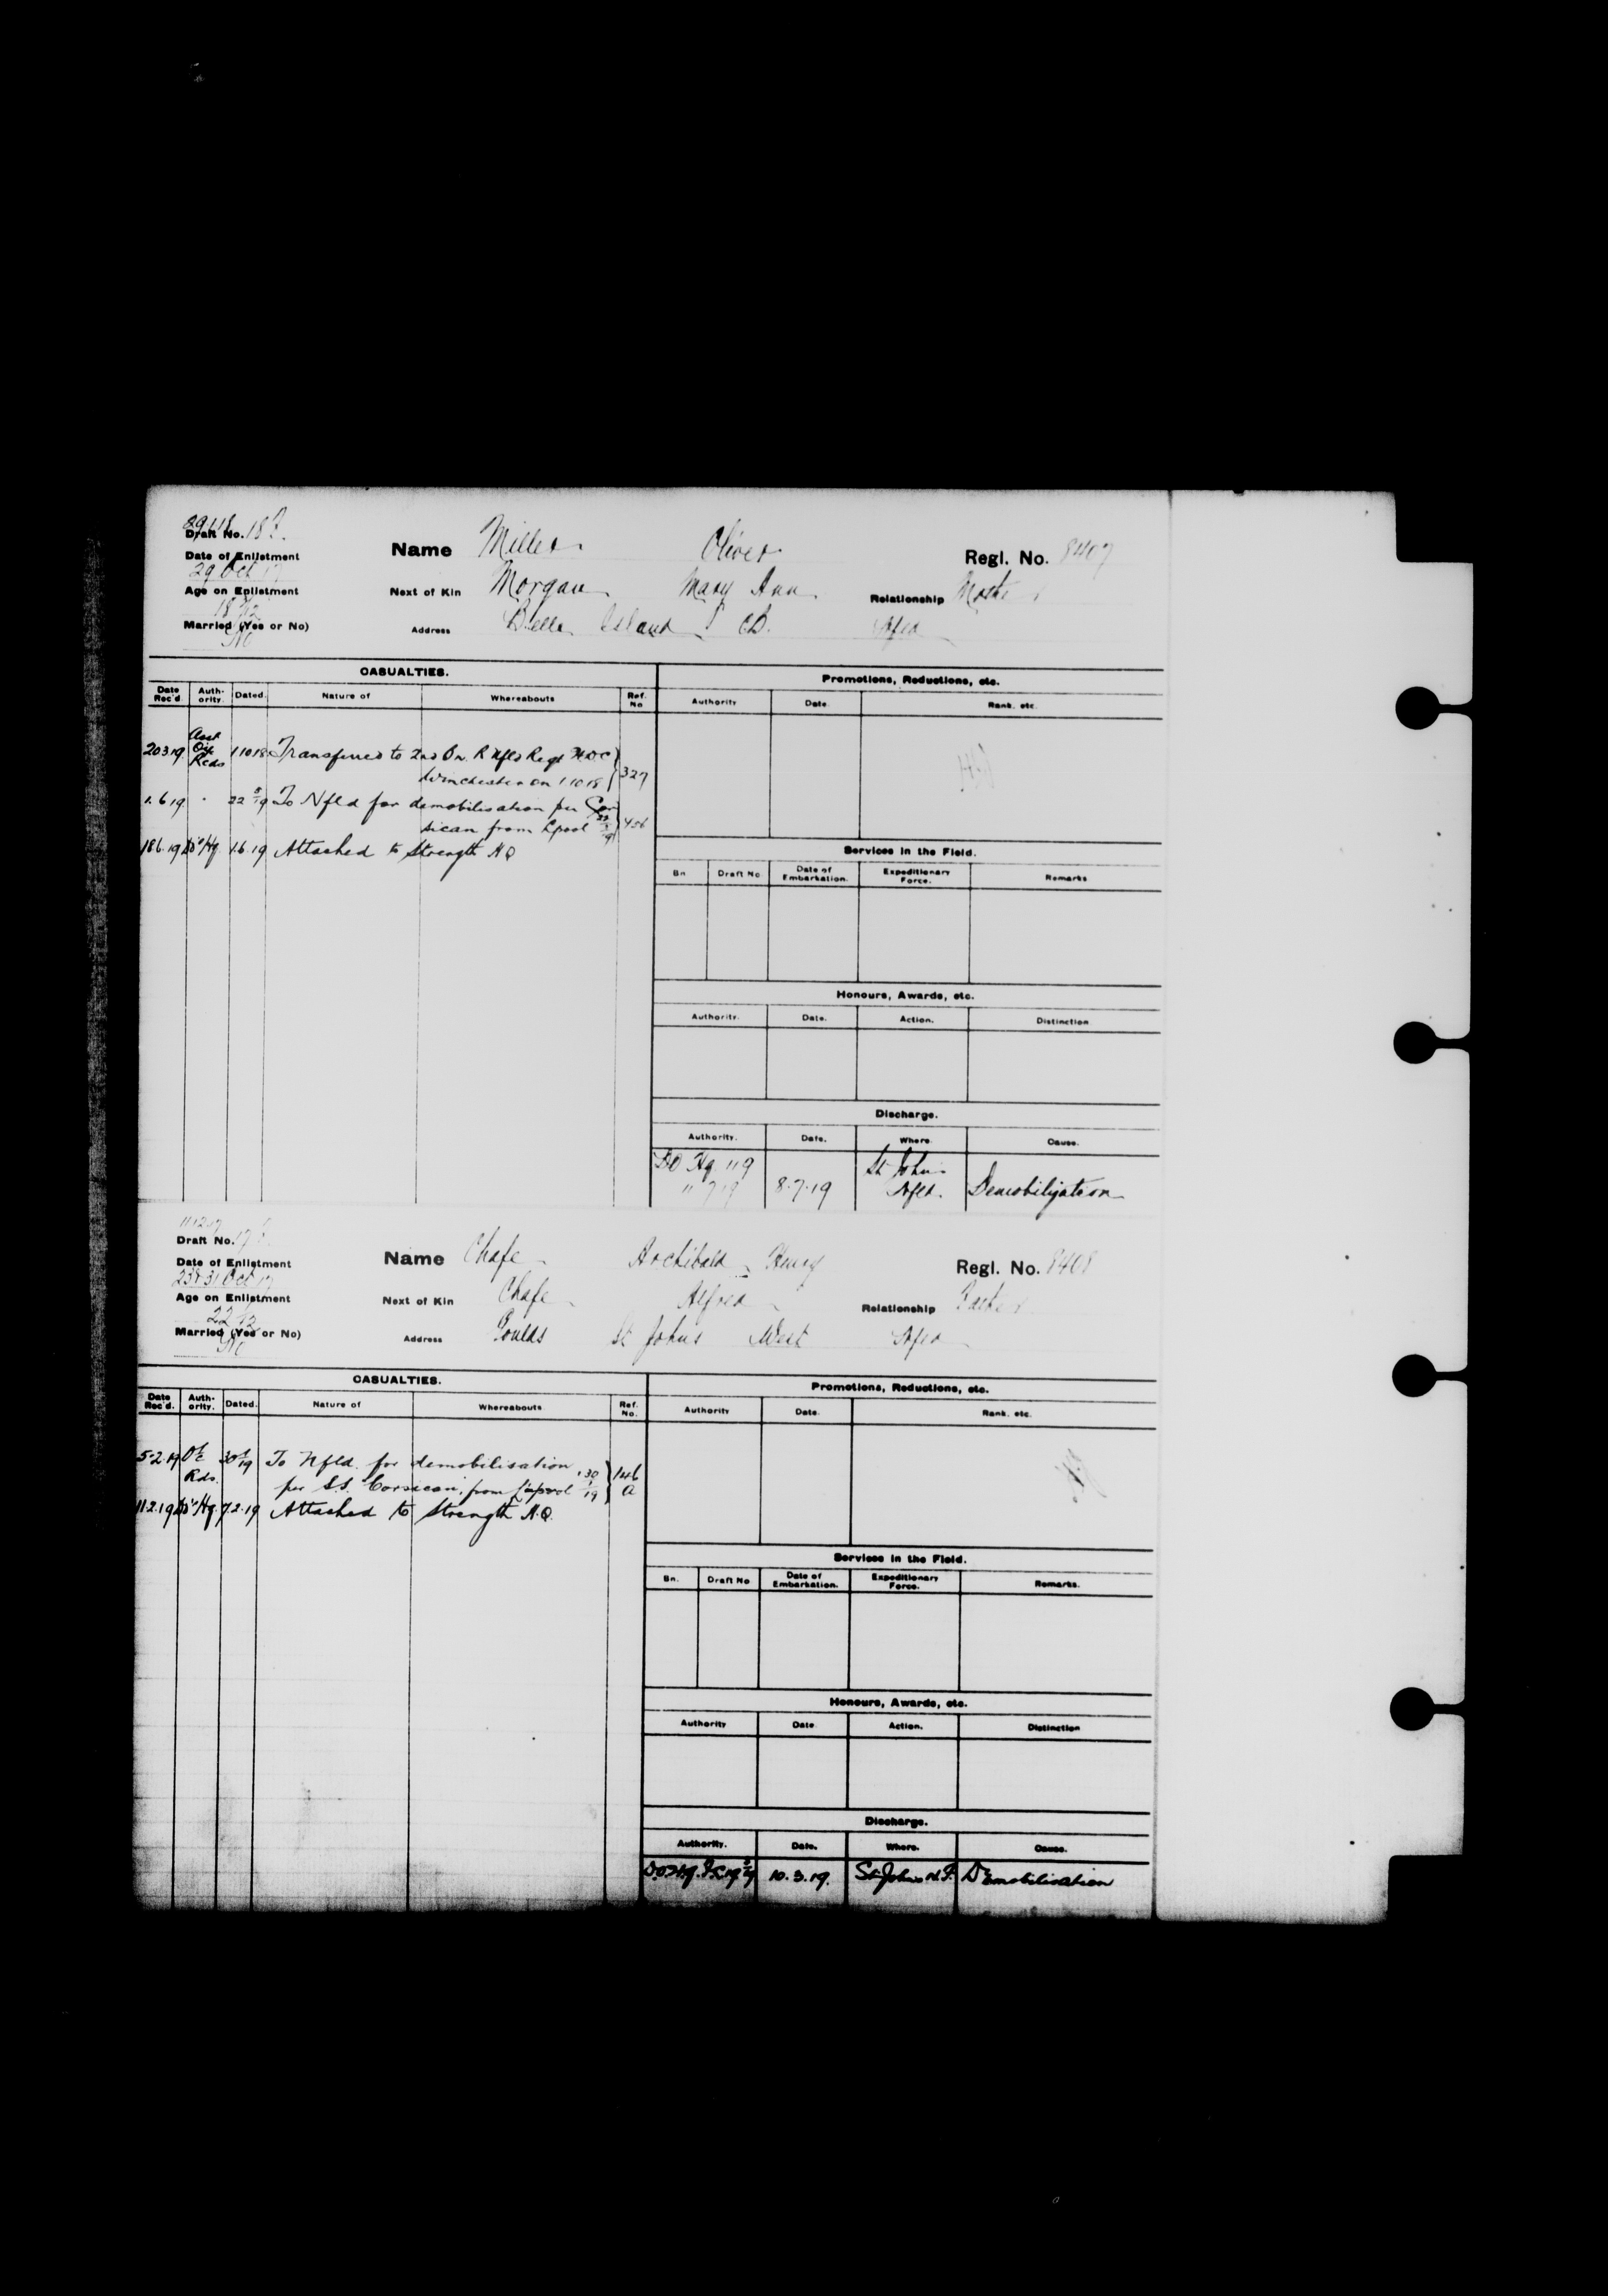 29.1.18
Draft No. 18
Date of Enlistment
29 Oct 17
Age on Enlistment
18
Married (Yes or No)
No
Name Miller Oliver
Regl. No. 8407
Next of Kin Morgan Mary Ann
Relationship Mother
Address Belle Island CB. Nfld
CASUALTIES.
Date Rec'd. Auth-ority. Dated. Nature of Whereabouts Ref. No
20.3.19 Asst O i/c Rcds 1.10.18 Transferred to 2nd Bn. R Nfld Regt H.D.C
Winchester on 1.10.18 327
1.6.19 " 22 5/19 To Nfld for demobilisation per Cor
sican from Lpool 22/5/19 456
18.6.19 DO's Hq. 1.6.19 Attached to Strength HQ
Promotions, Reductions, etc.
Authority Date. Rank. etc.
Services in the Field.
Bn Draft No Date of Embarkation. Expeditionary Force. Remarks
Honours, Awards, etc.
Authority. Date. Action. Distinction
Discharge.
Authority. Date. Where. Cause.
DO Hq. 119
11 7 19 8.7.19 St John's Nfld. Demobilization
11.12.17
Draft No. 17
Date of Enlistment
Oct 17
Age on Enlistment
22
Married (Yes or No)
No
Name Chafe Archibald Henry
Regl. No. 8408
Next of Kin Chafe Alfred
Relationship Father
Address Goulds St Johns West Nfld
CASUALTIES.
Date Rec'd. Auth-ority. Dated. Nature of Whereabouts Ref. No.
5.2.19 O i/c Rds. 30 1/19 To Nfld. for demobilisation
per S.S. Corsican, from L'pool 30/1/19 146 a
11.2.19 DO's Hq. 7.2.19 Attached to Strength H.Q.
Promotions, Reductions, etc.
Authority Date. Rank. etc.
Services in the Field.
Bn. Draft No Date of Embarkation. Expeditionary Force. Remarks.
Honours, Awards, etc.
Authority Date Action. Distinction
Discharge.
Authority. Date. Where. Cause.
10.3.19. St Johns N.F. Demobilisation